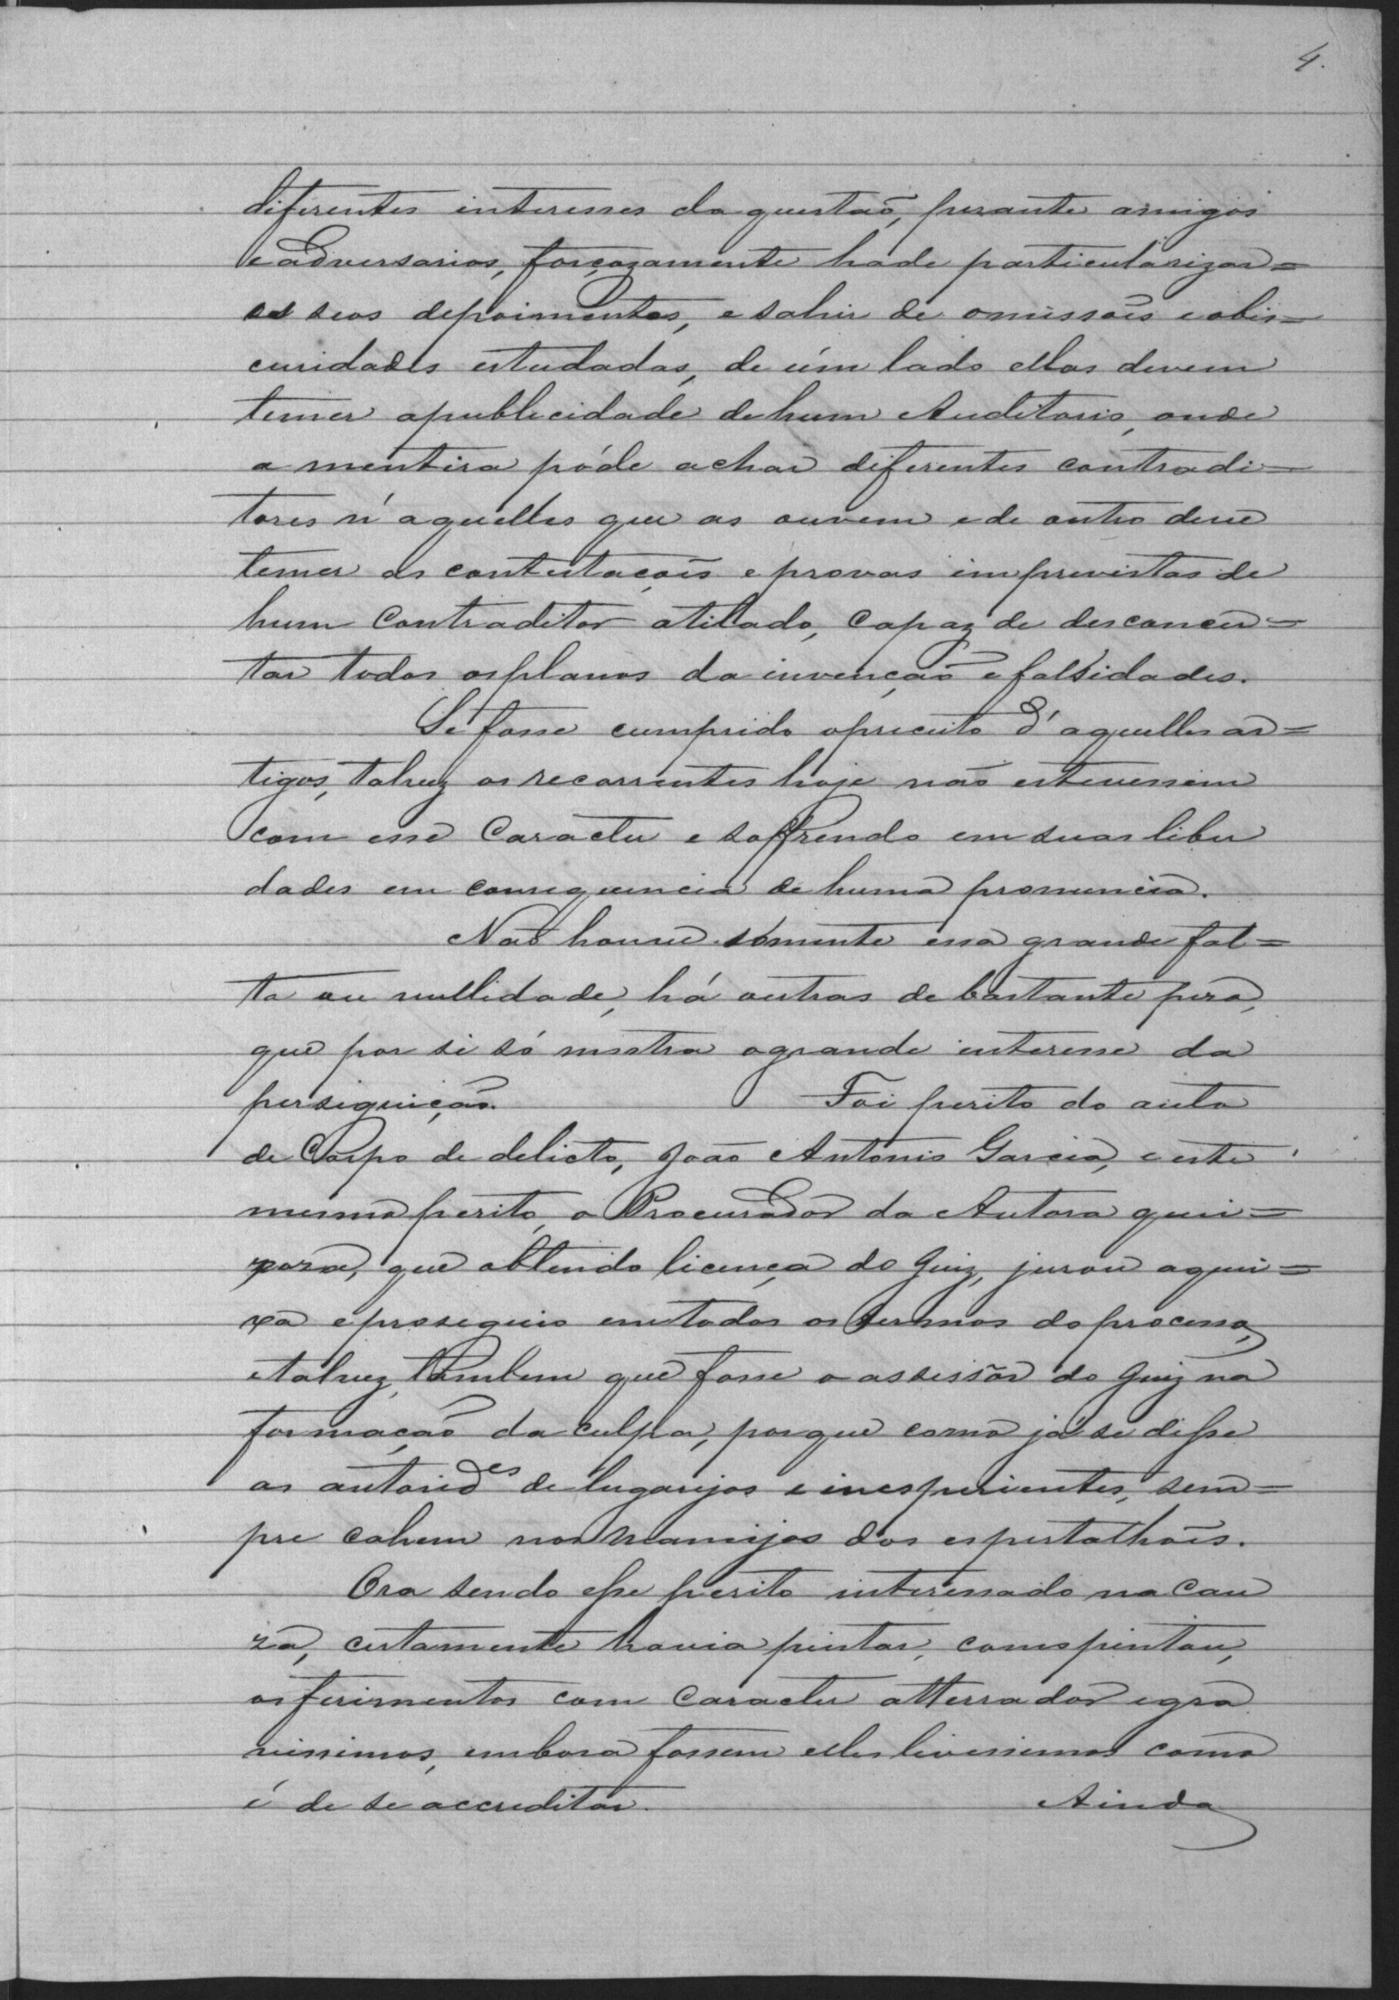 4.
diferentes interesses da questaõ, perante amigos
e adversarios, forçozamente hade particularizar=
os seos depoimentos, e sahir de omissoẽs e obis=
curidades estudadas, de úm lado ellas devem
temer apublicidade dehum Auditorio, onde
a mentira póde achar diferentes contradi=
tores n'aquelles que as ouvem ede outro deve
temer as contestaçoẽs e provas imprevistas de
hum Contraditor atilado, capaz de desconcer=
tar todos osplanos da invençaõ e falsidades.
Se fosse cumprido opreceito d'aquelles ar=
tigos, talvez os recorrentes hoje naõ estevessem
com esse Caracter e soffrendo em suas liber
dades em consequencia de huma pronuncia.
Naõ houve sómente essa grande fal=
ta ou nullidade, há outras de bastante pezo,
que por si só mostra ogrande interesse da
perseguiçaõ. Foi perito do auto
de Corpo de delicto, Joaõ Antonio Garcia, e este
mesmo perito, o Procurador da Autora quei=
xoza, que obtendo licença do Juiz, jurou aquei=
xa eproseguio emtodos os termos do processo,
etalvez tambem que fosse o assessor do Juiz na
formaçaõ da culpa, porque como já se disse
as autorid.es de lugarejos e inesperientes, sem=
pre cahem nos manejos dos espertalhoẽs.
Ora sendo esse perito interessado na Cau
za, certamente havia pintar, comopintou,
osferimentos com Caracter atterrador egra
vissimos, embora fossem elles levissimos como
é de se accreditar. Ainda